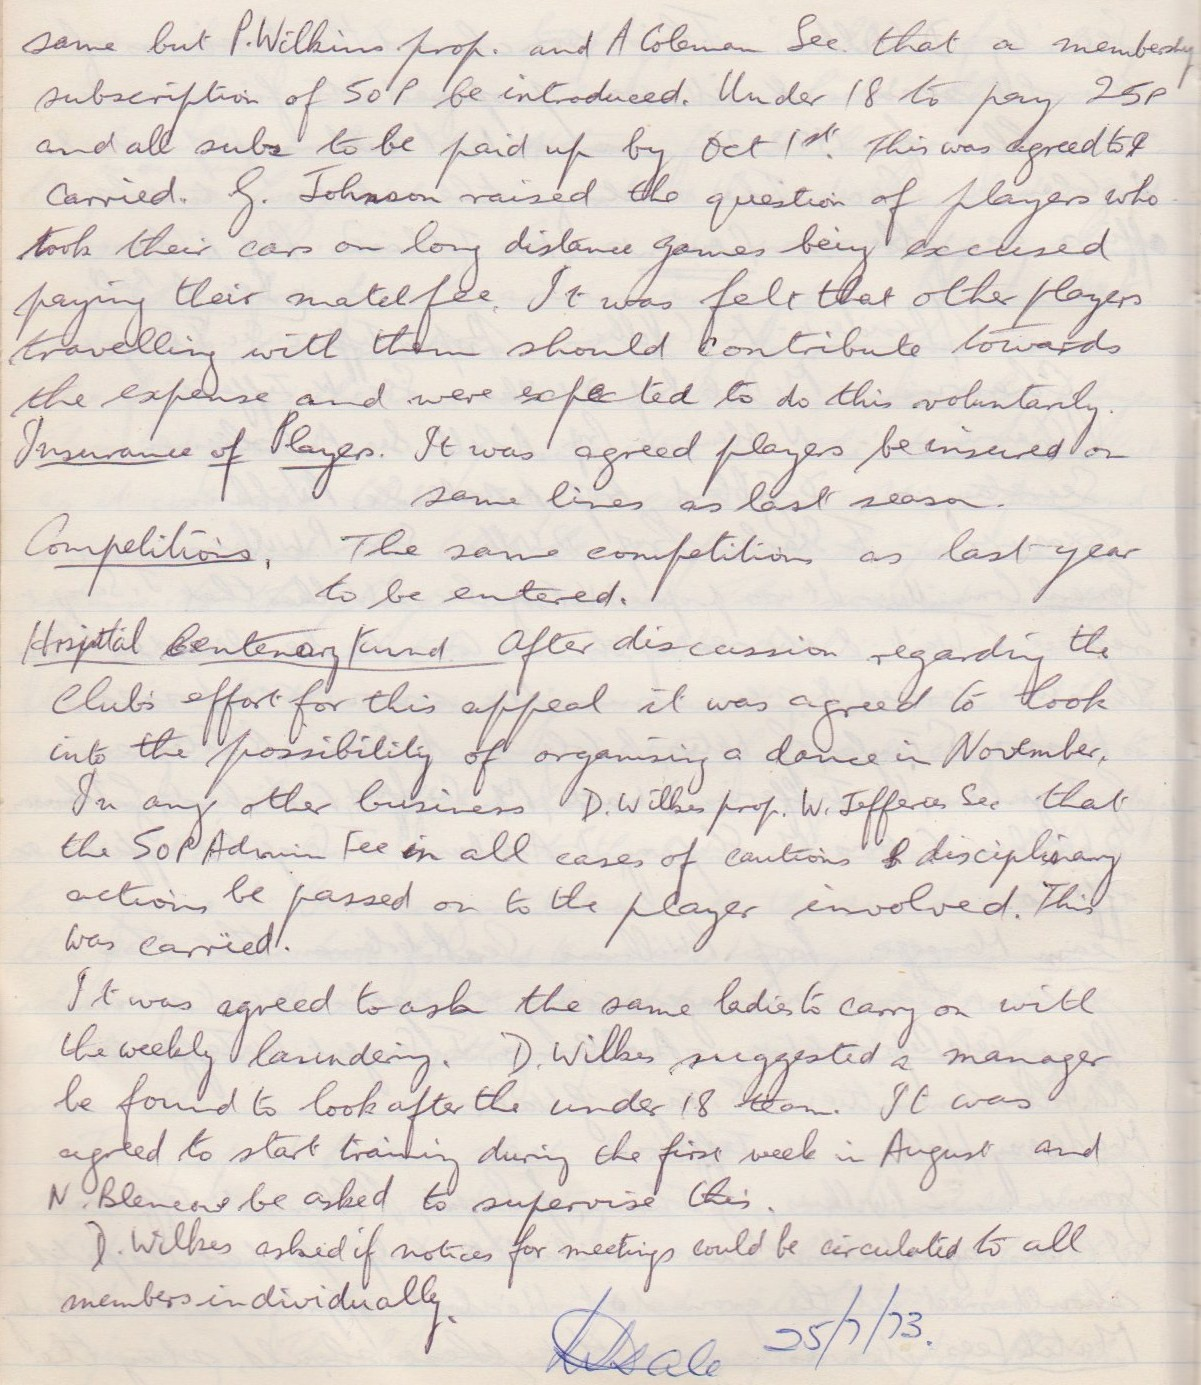 same but P. Wilkins prop. and A Coleman Sec. that a membership
subscription of 50P be introduced. Under 18 to pay 25P
and all subs to be paid up by Oct 1st. This was agreed to &
carried. G. Johnson raised the question of players who
took their cars on long distance games being excused
paying their match fee. It was felt that other players
travelling with them should contribute towards
the expense and were expected to do this voluntarily.
Insurance of Players. It was agreed players be insured on
same lines as last season.
Competitions. The same competitions as last year
to be entered.
Hospital Centenary Fund After discussion regarding the
Clubs effort for this appeal it was agreed to look
into the possibility of organising a dance in November.
In any other business D. Wilkes prop. W. Jefferies Sec that
the 50P Admin Fee in all cases of cautions & disciplinary
actions be passed on to the player involved. This
was carried.
It was agreed to ask the same ladies to carry on with
the weekly laundering. D. Wilkes suggested a manager
be found to look after the under 18 team. It was
agreed to start training during the first week in August and
N. Blencowe be asked to supervise this.
D. Wilkes asked if notices for meetings could be circulated to all
members individually.
25/7/73.